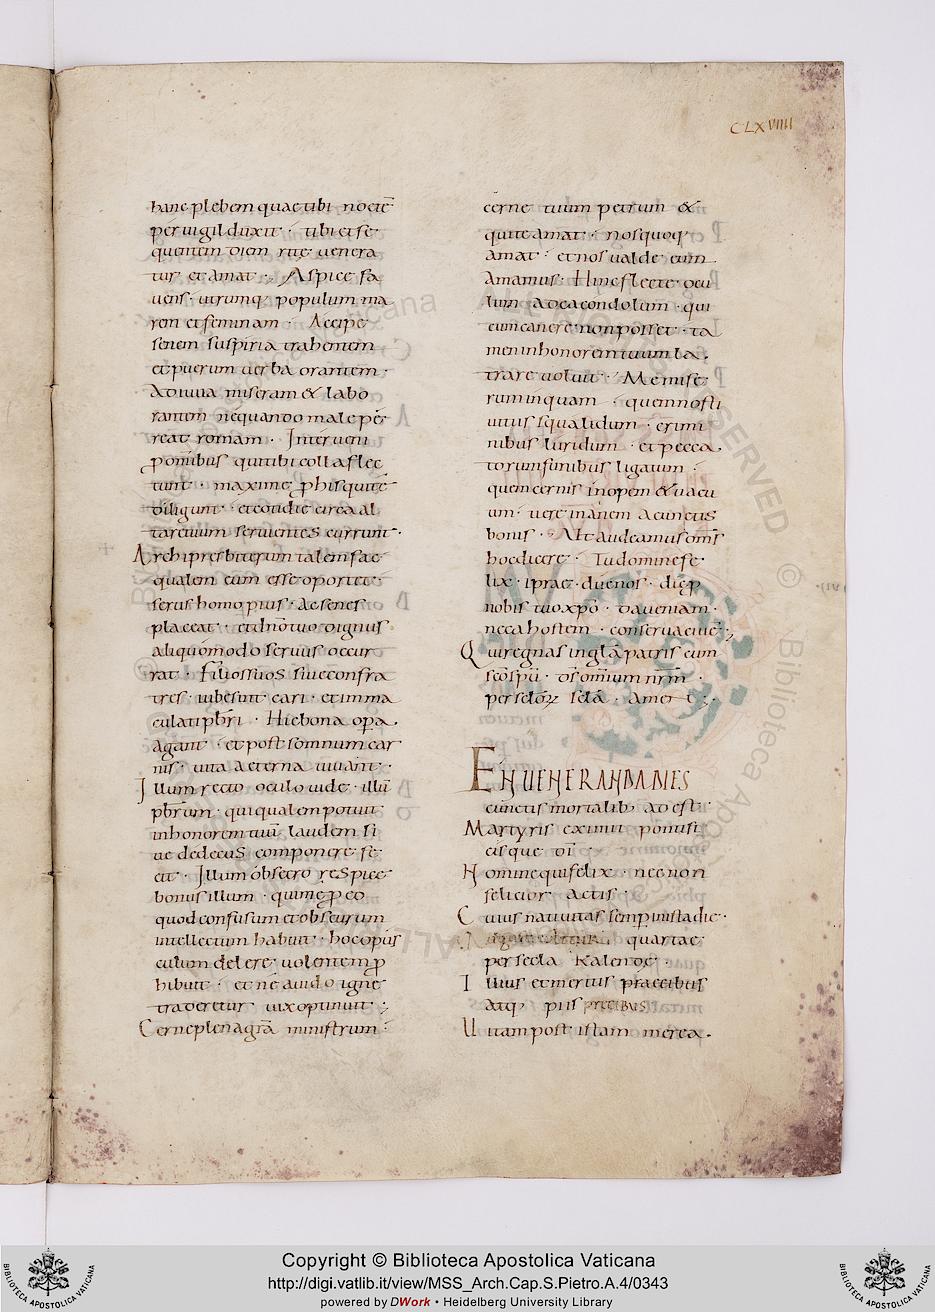 CLXVIIII
hanc plebem quae tibi nocte̅
pervigil duxit · tibi et se
quentem diem rite venera
tur et amat · Aspice fa
vens utrumq; populum ma
rem et feminam · Accipe
senem suspiria trahentem
et puerum verba orantem ·
Adiuva miseram & labo
rantem nequando male pe
reat romam · Interveni
ponibus qui tibi colla flec
tunt · maxime p his qui te
diligunt · et cotidie circa al
tare tuum servientes currunt ·
Archipresbiterum talem fac
qualem eum esse oportet ·
servus homo pius · Ac senes
placeat · et dno tuo dignus
aliquomodo servus occur
rat · Filios suos sive confra
tres · iubes ut cari · et imma
culati pbri · Hic bona opa
agant · et post somnum car
nis · vita aeterna vivant ·
Illum recto oculo vide · illu̅
pbrum · qui qualem potuit
in honorem tuu̅ laudem si
ve dedecus componere fe
cit · Illum obsecro respice
bonus illum · quine p eo
quod confusum et obscurum
intellectum habuit · hoc opus
culum delere volentem p
hibuit · et ne avido igne
traderetur vix optinuit ;
Cerne plena gra̅ ministrum
cerne tuum petrum &
qui te amat · nos quoq;
amat · et nos valde eum
Amamus · Hinc flecte ocu
lum ad cacondolum · qui
cum canere non posset · ta
men in honorem tuum la
trare voluit · Me mise
rum inquam · quem nosti
intus squalidum · crimi
nibus luridum · et pecca
torum funibus ligatum ·
quem cernis inopem & vacu
um · vere inanem a cunctis
bonis · At t audeamus om̅s
hoc dicere · Tu domine fe
lix · iprae · die nos · die p
nobis tuo xpo̅ · Da veniam ·
neca hostem · conserva cive̅ ·;
Qui regnas in gla̅ patris cum
sco̅ spu̅ · ds̅ omnium nrm̅ ·
per selo̅rz sela̅ · Amen ;·
EN VENERANDA DIES
cunctis mortalib; adest ·
Martyris eximii ponitis
eisque di̅ ·
Homine qui felix · nec non
felicior actis ·
Cuius nativitas semp in ista die ·
quartae
per secla Kalende ·
Illius et meritis praecibus
atq; piis precibus
Vitam post istam merea
Copyright © Biblioteca Apostolica Vaticana
http://digi.vatlib.it/view/MSS_Arch.Cap.S.Pietro.A.4/0343
powered by DWork • Heidelberg University Library